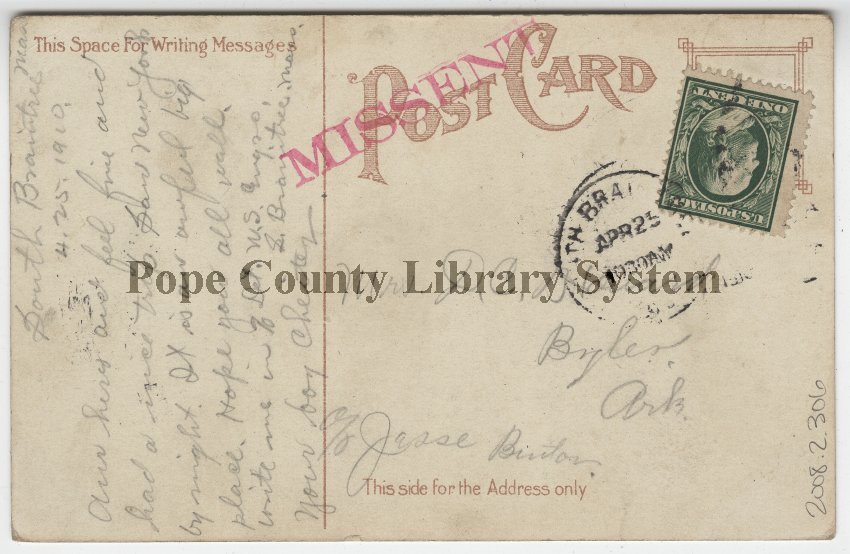 This Space For Writing Messages
POST CARD
MISSENT
South Braintree Mass
4.25.1910.
Am here and feel fine and
had a nice trip. Saw New York
by night. It is an awful big
place. Hope you all well.
write me in
S. Braintree. Mass.
Your boy Chester
ONE CENT
U.S. POSTAGE
TH BRA
APR 25
1030 AM
Mrs. D.A.
Byler,
Ark.
c/o Jesse Binton.
This side for the Address only
Pope County Library System
2008.2.306